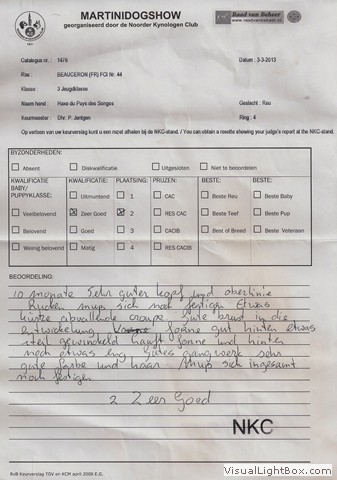 MARTINIDOGSHOW
georganiseerd door de Noorder Kynologen Club
Raad van Beheer
Catalogus nr. : 1476
Datum : 3-3-2013
Ras : BEAUCERON (FR) FCI Nr. 44
Klasse : 3 Jeugdklasse
Naam hond : Haxo du Pays des Songes
Geslacht : Reu
Keurmeester : Dhr. P. Jentgen
Ring : 4
Op vertoon van uw keurverslag kunt u een rozet afhalen bij de NKC-stand. / You can obtain a rosette showing your judge's report at the NKC-stand.
BYZONDERHEDEN:
Absent Diskwalificatie Uitgesloten Niet te beoordelen
KWALIFICATIE BABY/ PUPPYKLASSE: KWALIFICATIE: PLAATSING: PRIJZEN: BESTE: BESTE:
Uitmuntend 1 CAC Beste Reu Beste Baby
Veelbelovend Zeer Goed 2 RES CAC Beste Teef Beste Pup
Belovend Goed 3 CACIB Best of Breed Beste Veteraan
Weinig belovend Matig 4 RES CACIB
BEOORDELING:
10 monate Sehr guter kopf und oberlinie
Rücken muss sich noch festigen Etwas
kurze abfallende croupe. Gute brust in die
Entwickelung forne gut hinten etwas
steil gewinkeld hanft forne und hinten
noch etwas eng gutes gangwerk sehr
gute farbe und haar muss sich insgesamt
noch festigen
2 Zeer Goed
NKC
RvB Keurverslag TGV en KCM april 2008 E.G.
VisualLightBox.com